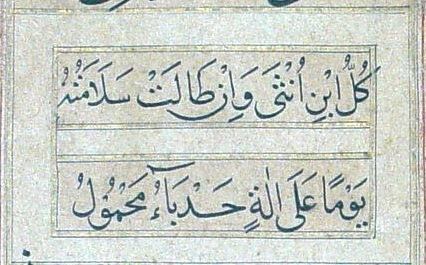 كُلُّ ابْنِ اُنْثٰى وَاِنْ طَالَتْ سَلَامَتُهُ
يَوْمًا عَلَى اٰلَةٍ حَدْبَآءُ مَحْمُوْلُ